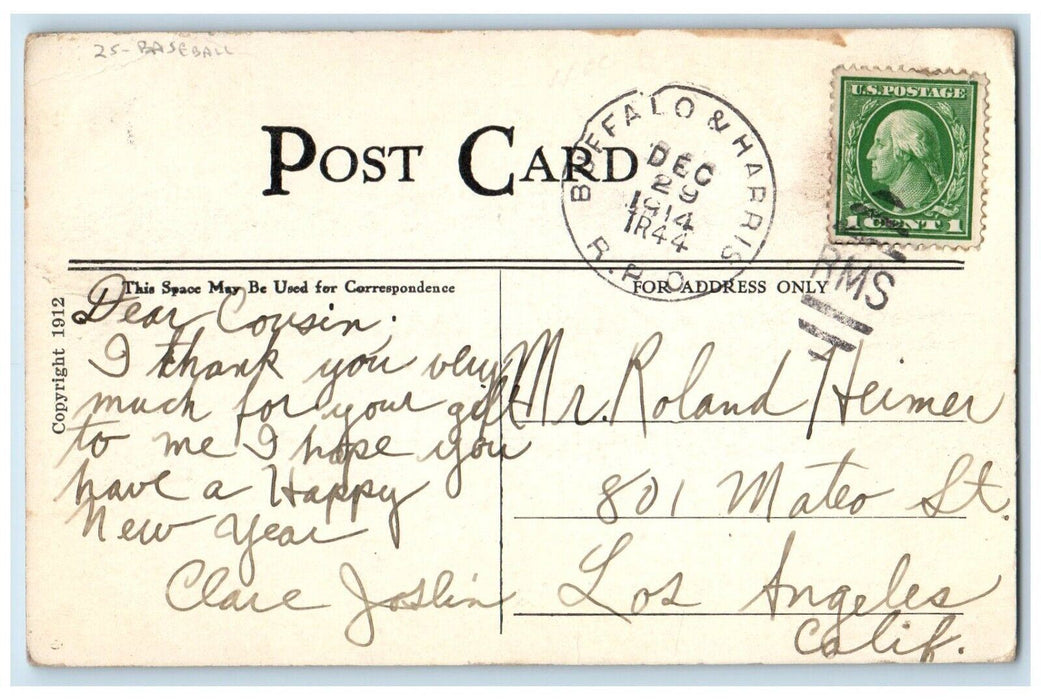 25- BASEBALL
POST CARD
BUFFALO & HARRIS
DEC
29
1914
TR44
R.P.O.
U.S. POSTAGE
1 CENT 1
RMS
This Space May Be Used for Correspondence
FOR ADDRESS ONLY
Copyright 1912
Dear Cousin:
I thank you very
much for your gift
to me I hope you
have a Happy
New Year
Clare Joslin
Mr. Roland Heimer
801 Mateo St.
Los Angeles
Calif.